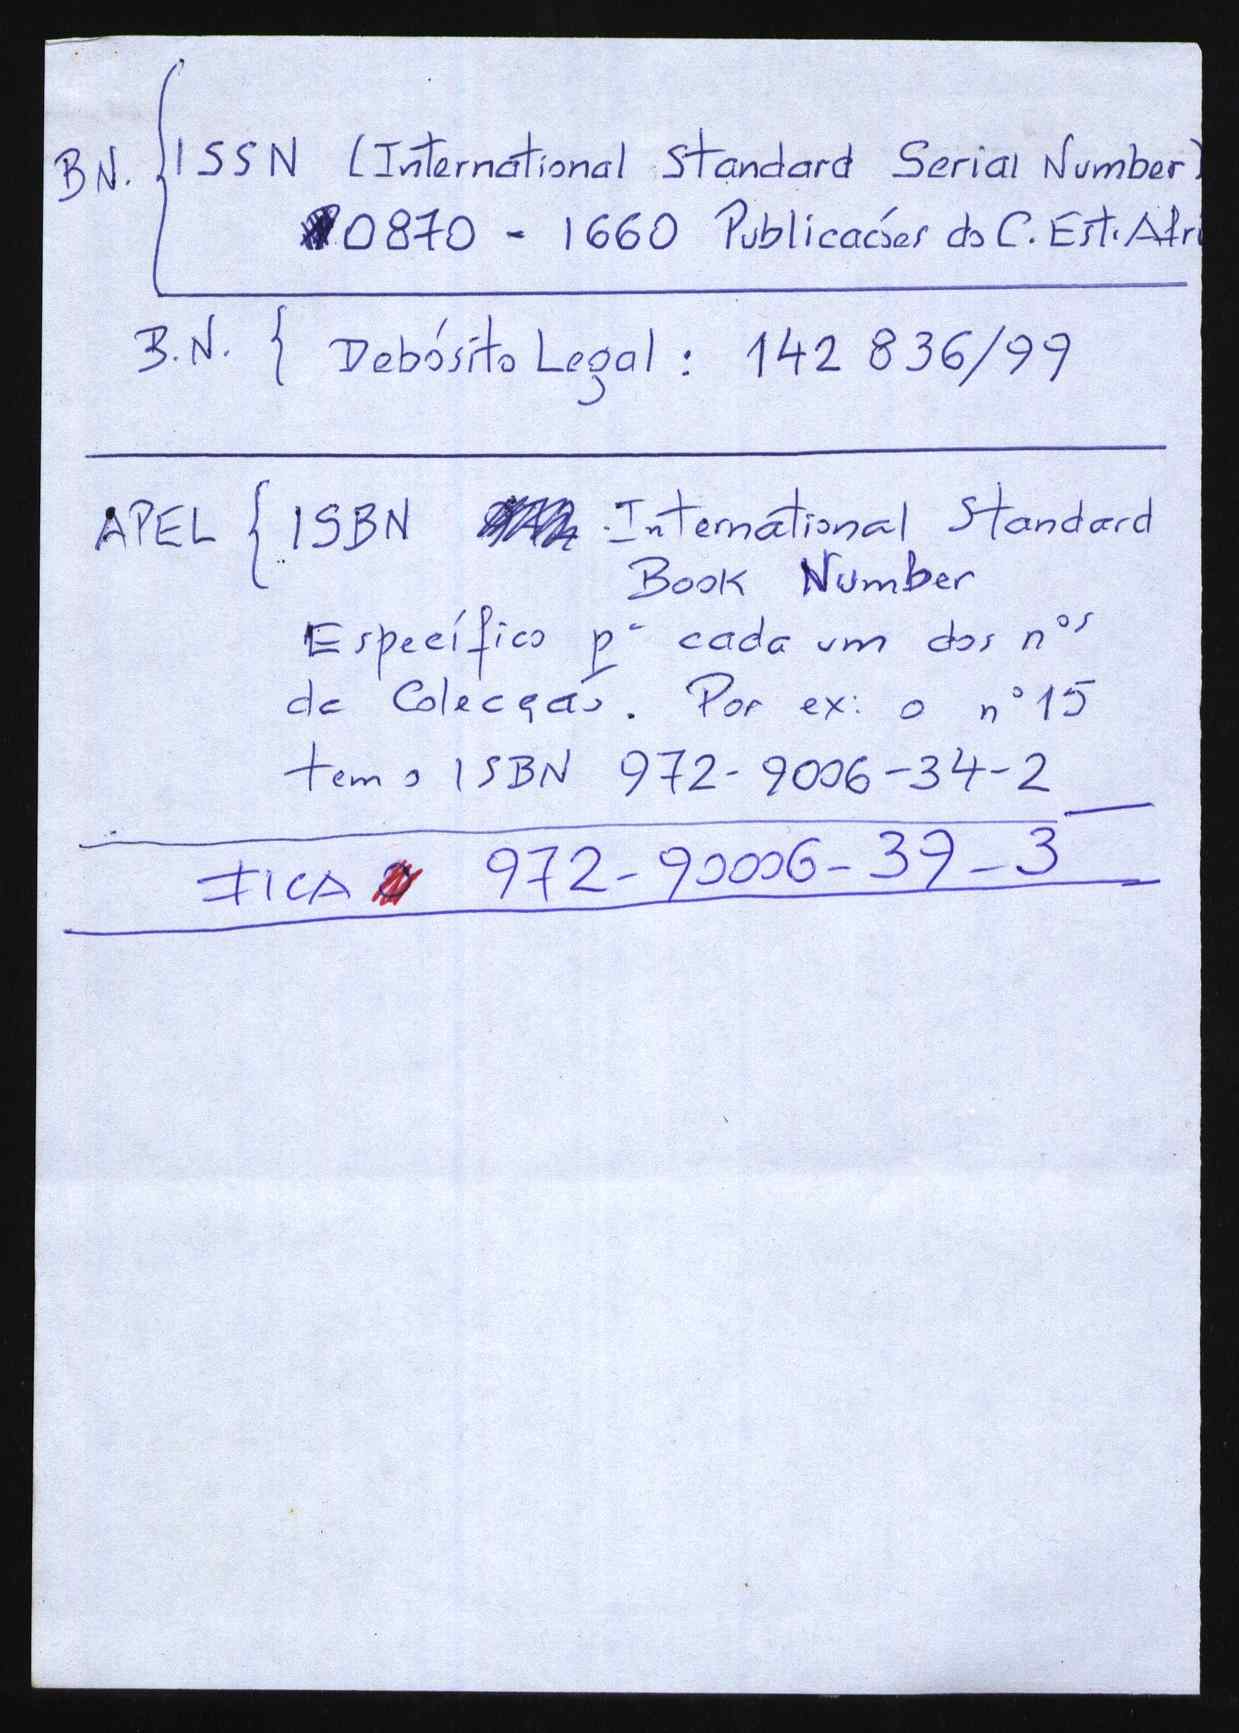 B.N. { ISSN (International Standard Serial Number)
0870 - 1660 Publicações do C. Est. Afri
B.N. { Debósito Legal: 142 836/99
APEL { ISBN International Standard
Book Number
Específico pª cada um dos nºs
da Colecção. Por ex: o nº 15
tem o ISBN 972-9006-34-2
FICA 972-90006-39-3